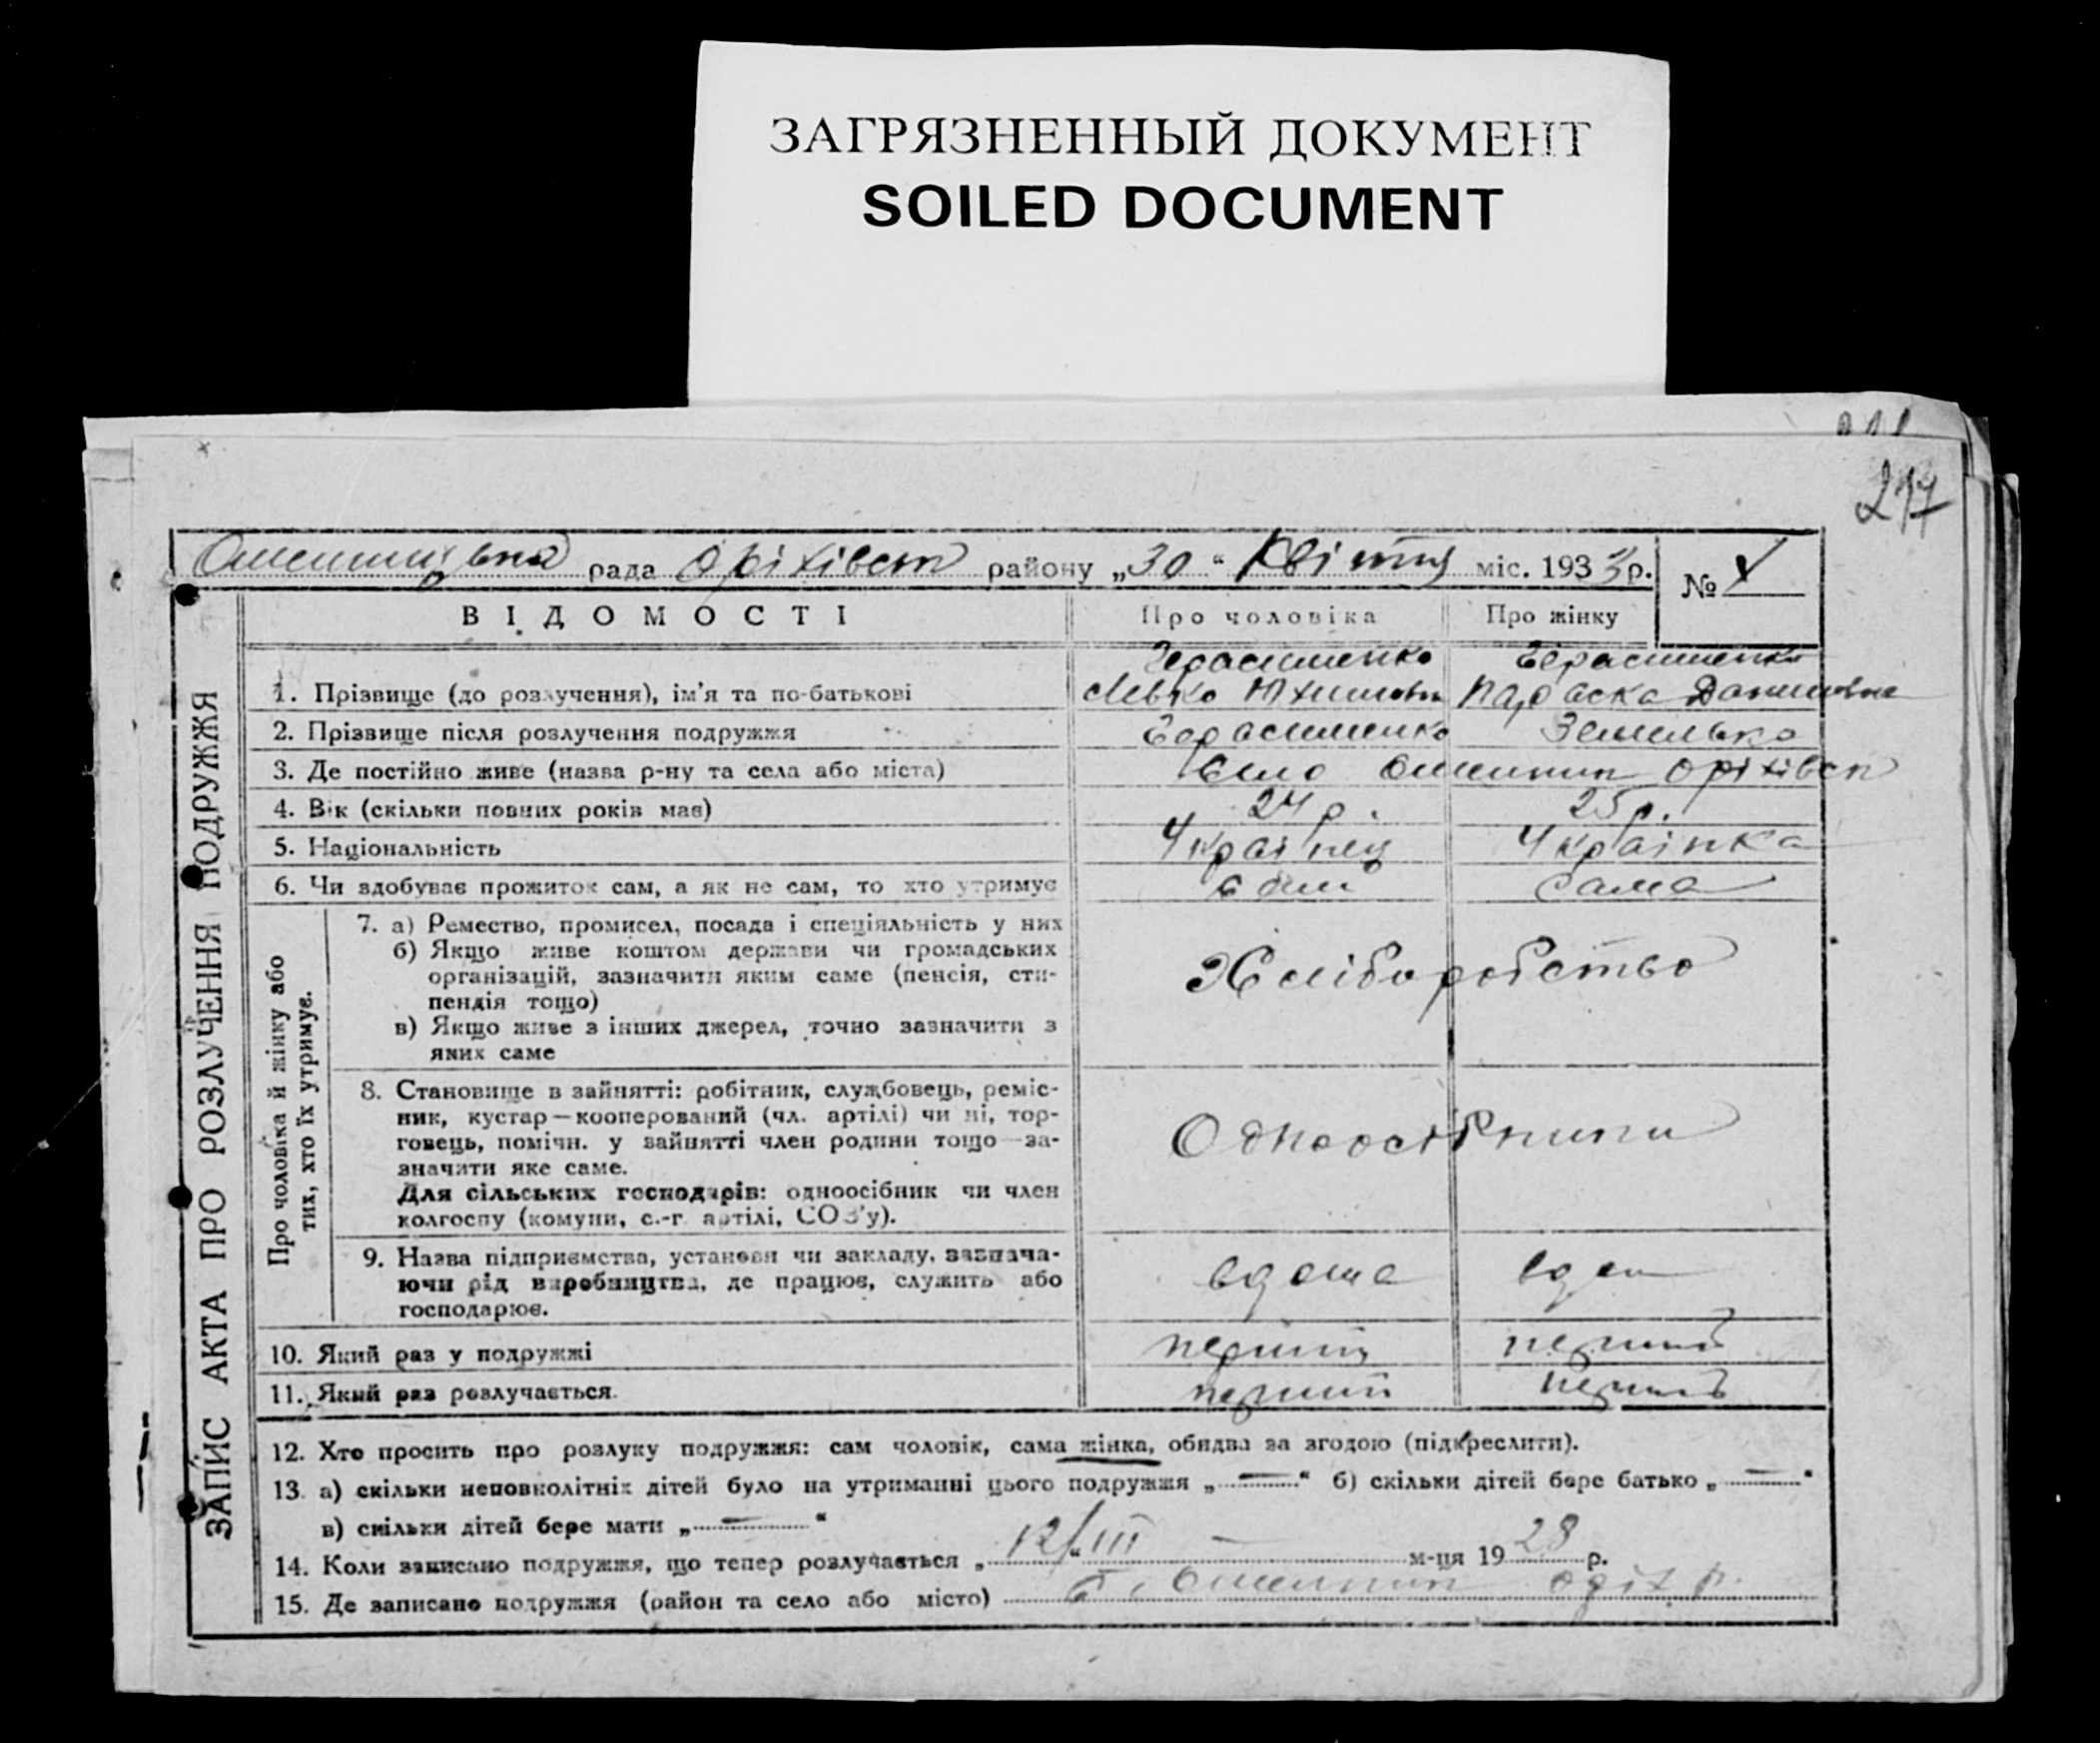 ЗАГРЯЗНЕННЫЙ ДОКУМЕНТ
SOILED DOCUMENT
217
рада Оріхівськ району „30“ Квітня міс. 1933 р. №
ВІДОМОСТІ Про чоловіка Про жінку
Герасименко Герасименко
1. Прізвище (до розлучення), ім'я та по-батькові Левко Юхимови Параска Даниловна
2. Прізвище після розлучення подружжя Герасименко
3. Де постійно живе (назва р-ну та села або міста) Село Омельник Оріхівсп
4. Вік (скільки повних років має) 24 р. 25 р.
5. Національність Українец Українка
6. Чи здобуває прожиток сам, а як не сам, то хто утримує Сам Сама
ЗАПИС АКТА ПРО РОЗЛУЧЕННЯ ПОДРУЖЖЯ
Про чоловіка й жінку або
тих, хто їх утримує.
7. а) Ремество, промисел, посада і спеціяльність у них
б) Якщо живе коштом держави чи громадських
організацій, зазначити яким саме (пенсія, сти-
пендія тощо)
Хліборобство
в) Якщо живе з інших джерел, точно зазначити з
яких саме
8. Становище в зайнятті: робітник, службовець, реміс-
ник, кустар—кооперований (чл. артілі) чи ні, тор-
говець, помічн. у зайнятті член родини тощо—за-
значити яке саме.
Одноосібники
Для сільських господарів: одноосібник чи член
колгоспу (комуни, с.-г. артілі, СОЗ'у).
9. Назва підприємства, установи чи закладу, зазнача-
ючи рід виробництва, де працює, служить або
господарює.
вдома
10. Який раз у подружжі перший перший
11. Який раз розлучається. перший перший
12. Хто просить про розлуку подружжя: сам чоловік, сама жінка, обидва за згодою (підкреслити).
13. а) скільки неповнолітніх дітей було на утриманні цього подружжя „—“ б) скільки дітей бере батько „—“
в) скільки дітей бере мати „—“
14. Коли записано подружжя, що тепер розлучається „12/III — м-ця 1928 р.
15. Де записано подружжя (район та село або місто) с. Омельник Оріх р.